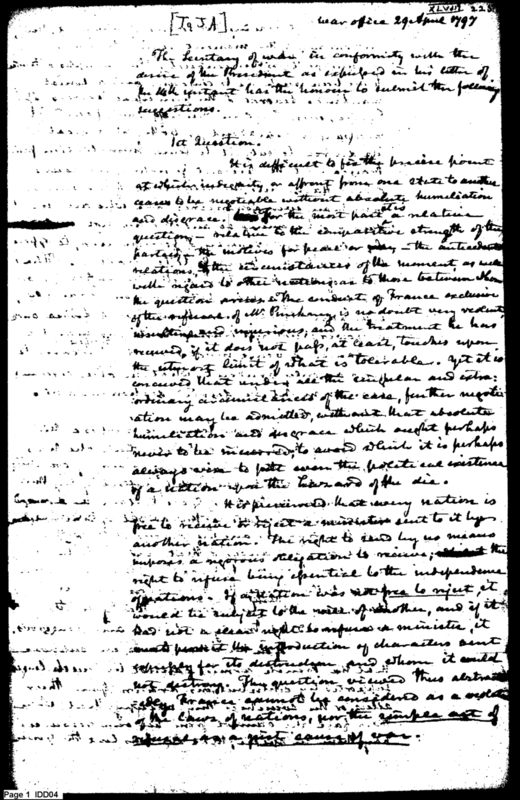 XLVIII 225
[To J A] War office 29 April 1797
The Secretary of war in conformity with the
desire of the President as expressed in his letter of
the 14th instant has the honour to submit the following
suggestions.
1st Question.
It is difficult to fix the precise point
at which indignity, or affront from one state to another
ceases to be negotiable without absolute humiliation
and disgrace. for the most part a relative
question — relative to the comparative strength of the
parties, the motives for peace or — the antecedent
relations, the circumstances of the moment, as well
with regard to other nations, as to those between whom
the question arises. The conduct of France exclusive
of the refusal of Mr. Pinckney is no doubt very violent,
insulting and injurious, and the treatment he has
received, if it does not pass, at least, touches upon
the utmost limit of what is tolerable. Yet it is
conceived that under all the singular and extra-
ordinary circumstances of the case, further negoti-
ation may be admitted, without that absolute
humiliation and disgrace which ought perhaps
never to be incurred, to avoid which it is perhaps
always wise to put even the political existence
of a nation upon the hazard of the die.
It is perceived that every nation is
free to receive or reject a minister sent to it by
another nation. The right to send by no means
imposes a rigorous obligation to receive; the
right to refuse being essential to the independence
of nations. If a nation was not free to reject, it
would be subject to the will of another, and if it
had not a clear right to refuse a minister, it
must permit the introduction of characters sent
expressly for its destruction and whom it could
not destroy. This question viewed thus abstract-
edly, France cannot be considered as a violator
of the laws of nations, nor the simple act of
refusal as a just cause of war.
Page 1 IDD04